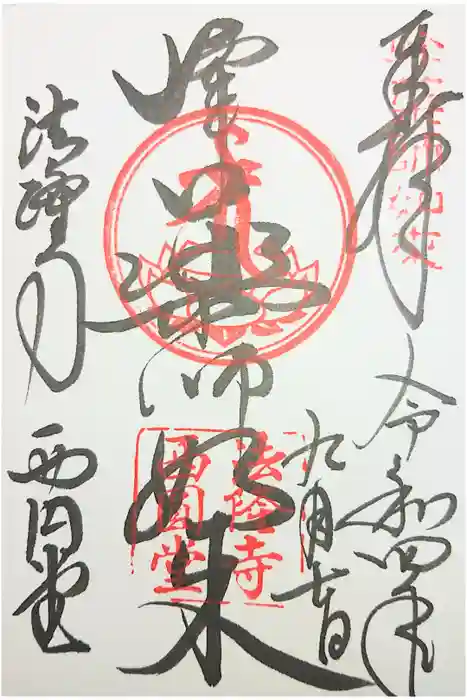 奉拝
令和四年
九月十日
峰の薬師如来
法隆寺
西円堂
法隆寺
西圓堂